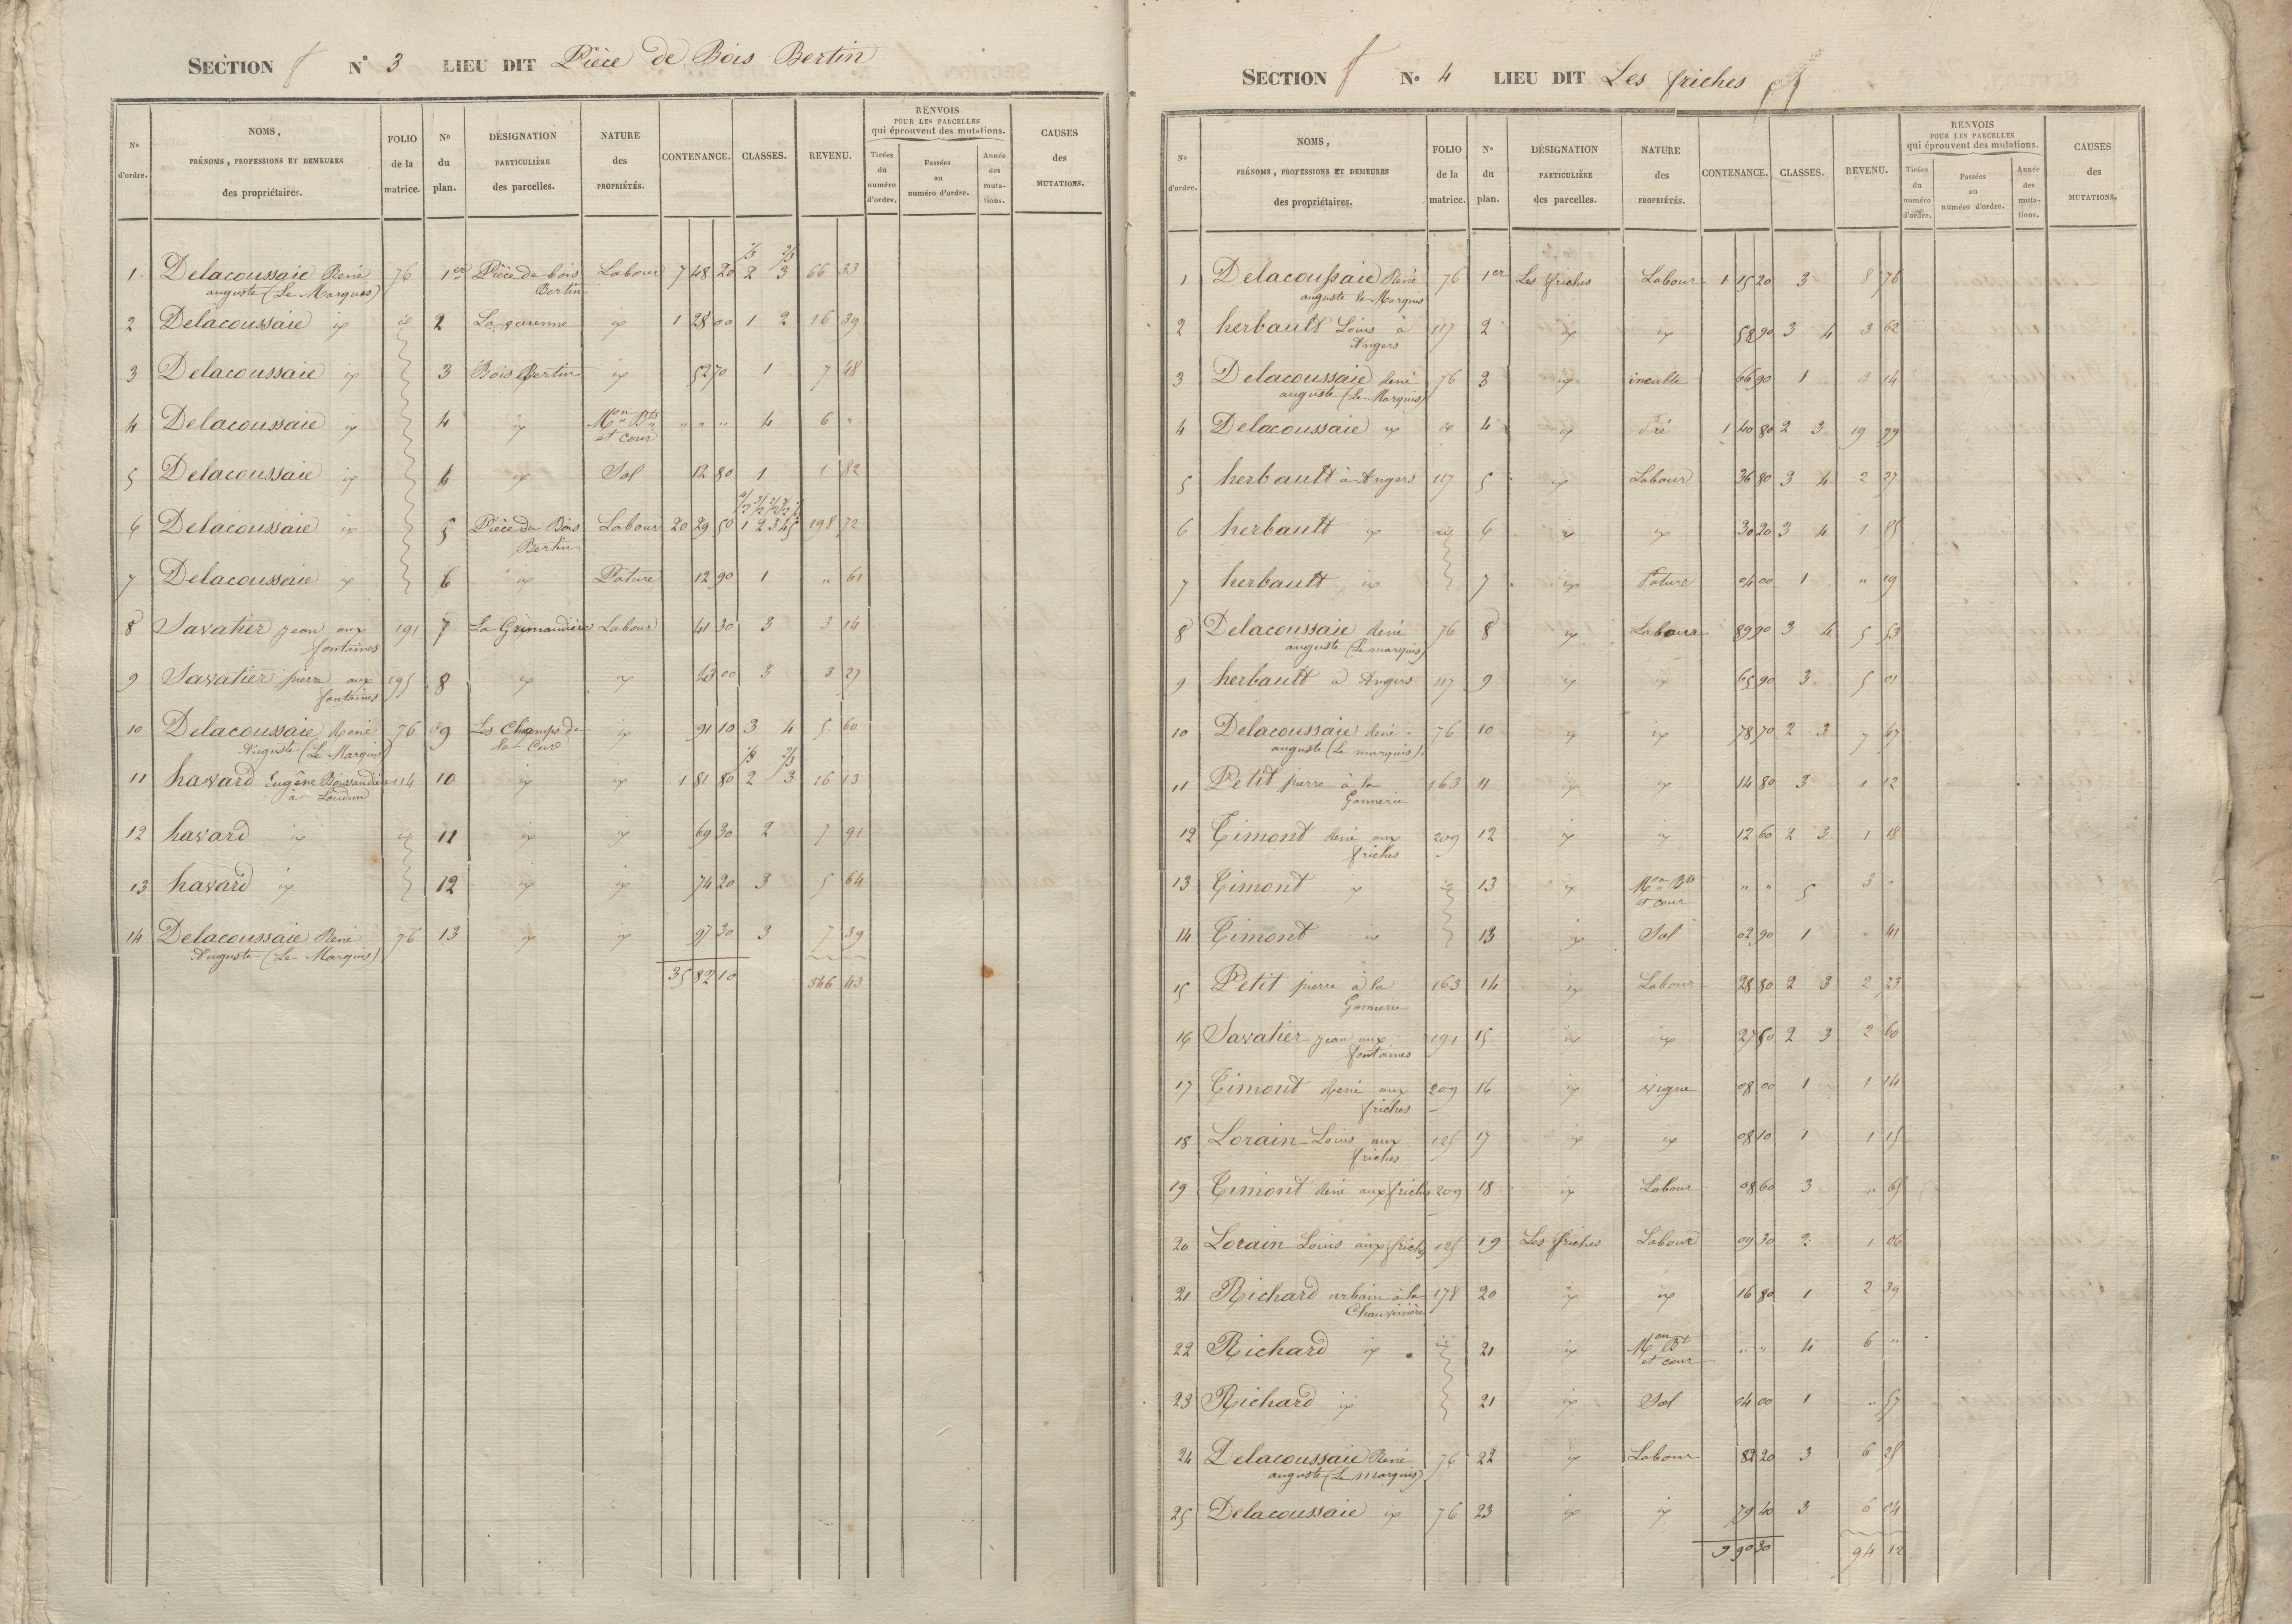 SECTION f N° 3 LIEU DIT Pièce de Bois Bertin
N° d'ordre. NOMS, PRÉNOMS, PROFESSIONS ET DEMEURES des propriétaires. FOLIO de la matrice. N° du plan. DÉSIGNATION PARTICULIÈRE des parcelles. NATURE des PROPRIÉTÉS. CONTENANCE. CLASSES. REVENU. RENVOIS POUR LES PARCELLES qui éprouvent des mutations. Tirées du numéro d'ordre. Passées au numéro d'ordre. Année des mutations. CAUSES des MUTATIONS.
1 Delacoussaie René 76 1er Pièce de bois Labour 7 48 20 2 3 66 23
auguste (Le Marquis) Bertin
2 Delacoussaie id id 2 La varenne id 1 28 00 1 2 16 39
3 Delacoussaie id 3 Bois Bertin id 52 70 1 7 48
4 Delacoussaie id 4 id Mon Bts 4 6 "
et cour
5 Delacoussaie id 4 id Sol 12 80 1 1 82
6 Delacoussaie id 5 Pièce du Bois Labour 20 29 50 1 2 3 4 5 198 72
Bertin
7 Delacoussaie id 6 id Pature 12 90 1 " 61
8 Savatier jean aux 191 7 La Grimaudière Labour 41 30 3 3 14
fontaines
9 Savatier pierre aux 195 8 id id 43 00 3 3 27
fontaines
10 Delacoussaie René 76 9 Les Champs de id 91 10 3 4 5 60
Auguste (Le Marquis) la Cure
11 havard Eugène 114 10 id id 1 81 80 2 3 16 13
à Loudun
12 havard id id 11 id id 69 30 2 7 91
13 havard id 12 id id 74 20 3 5 64
14 Delacoussaie René 76 13 id id 97 30 3 7 39
Auguste (Le Marquis)
35 82 10 346 43
SECTION f N° 4 LIEU DIT Les friches
N° d'ordre. NOMS, PRÉNOMS, PROFESSIONS ET DEMEURES des propriétaires. FOLIO de la matrice. N° du plan. DÉSIGNATION PARTICULIÈRE des parcelles. NATURE des PROPRIÉTÉS. CONTENANCE. CLASSES. REVENU. RENVOIS POUR LES PARCELLES qui éprouvent des mutations. Tirées du numéro d'ordre. Passées au numéro d'ordre. Année des mutations. CAUSES des MUTATIONS.
1 Delacoussaie René 76 1er Les friches Labour 1 15 20 3 8 76
auguste le Marquis
2 herbault Louis à 117 2 id id 58 90 3 4 3 62
Angers
3 Delacoussaie René 76 3 id inculte 66 90 1 14
auguste (Le Marquis)
4 Delacoussaie id id 4 id Pré 1 40 80 2 3 19 99
5 herbault à Angers 117 5 id Labour 36 80 3 4 2 27
6 herbault id id 6 id id 30 20 3 4 1 85
7 herbault id 7 id Pature 04 00 1 " 19
8 Delacoussaie René 76 8 id Labour 89 90 3 4 5 53
auguste (Le marquis)
9 herbault à Angers 117 9 id id 65 90 3 5 01
10 Delacoussaie René 76 10 id id 78 70 2 3 7 47
auguste (Le marquis)
11 Petit pierre à la 163 11 id id 14 80 3 1 12
Gannerie
12 Timont René aux 209 12 id id 12 60 2 3 1 18
friches
13 Timont id id 13 id Mon Bts " " 5 3 "
et cour
14 Timont id 13 id Sol 02 90 1 " 41
15 Petit pierre à la 163 14 id Labour 28 80 2 3 2 73
Gannerie
16 Savatier jean aux 191 15 id id 27 50 2 3 2 60
fontaines
17 Timont René aux 209 16 id vigne 08 00 1 1 14
friches
18 Lorain Louis aux 125 17 id id 08 10 1 1 15
friches
19 Timont René aux friches 209 18 id Labour 08 60 3 " 65
20 Lorain Louis aux friches 125 19 Les friches Labour 09 30 2 1 06
21 Richard urbain à la 178 20 id id 16 80 1 2 39
Chauvinière
22 Richard id id 21 id Mon Bt " " 4 6 "
et cour
23 Richard id 21 id Sol 04 00 1 " 57
24 Delacoussaie René 76 22 id Labour 82 20 3 6 25
auguste (Le marquis)
25 Delacoussaie id 76 23 id id 79 40 3 6 04
9 90 30 94 12